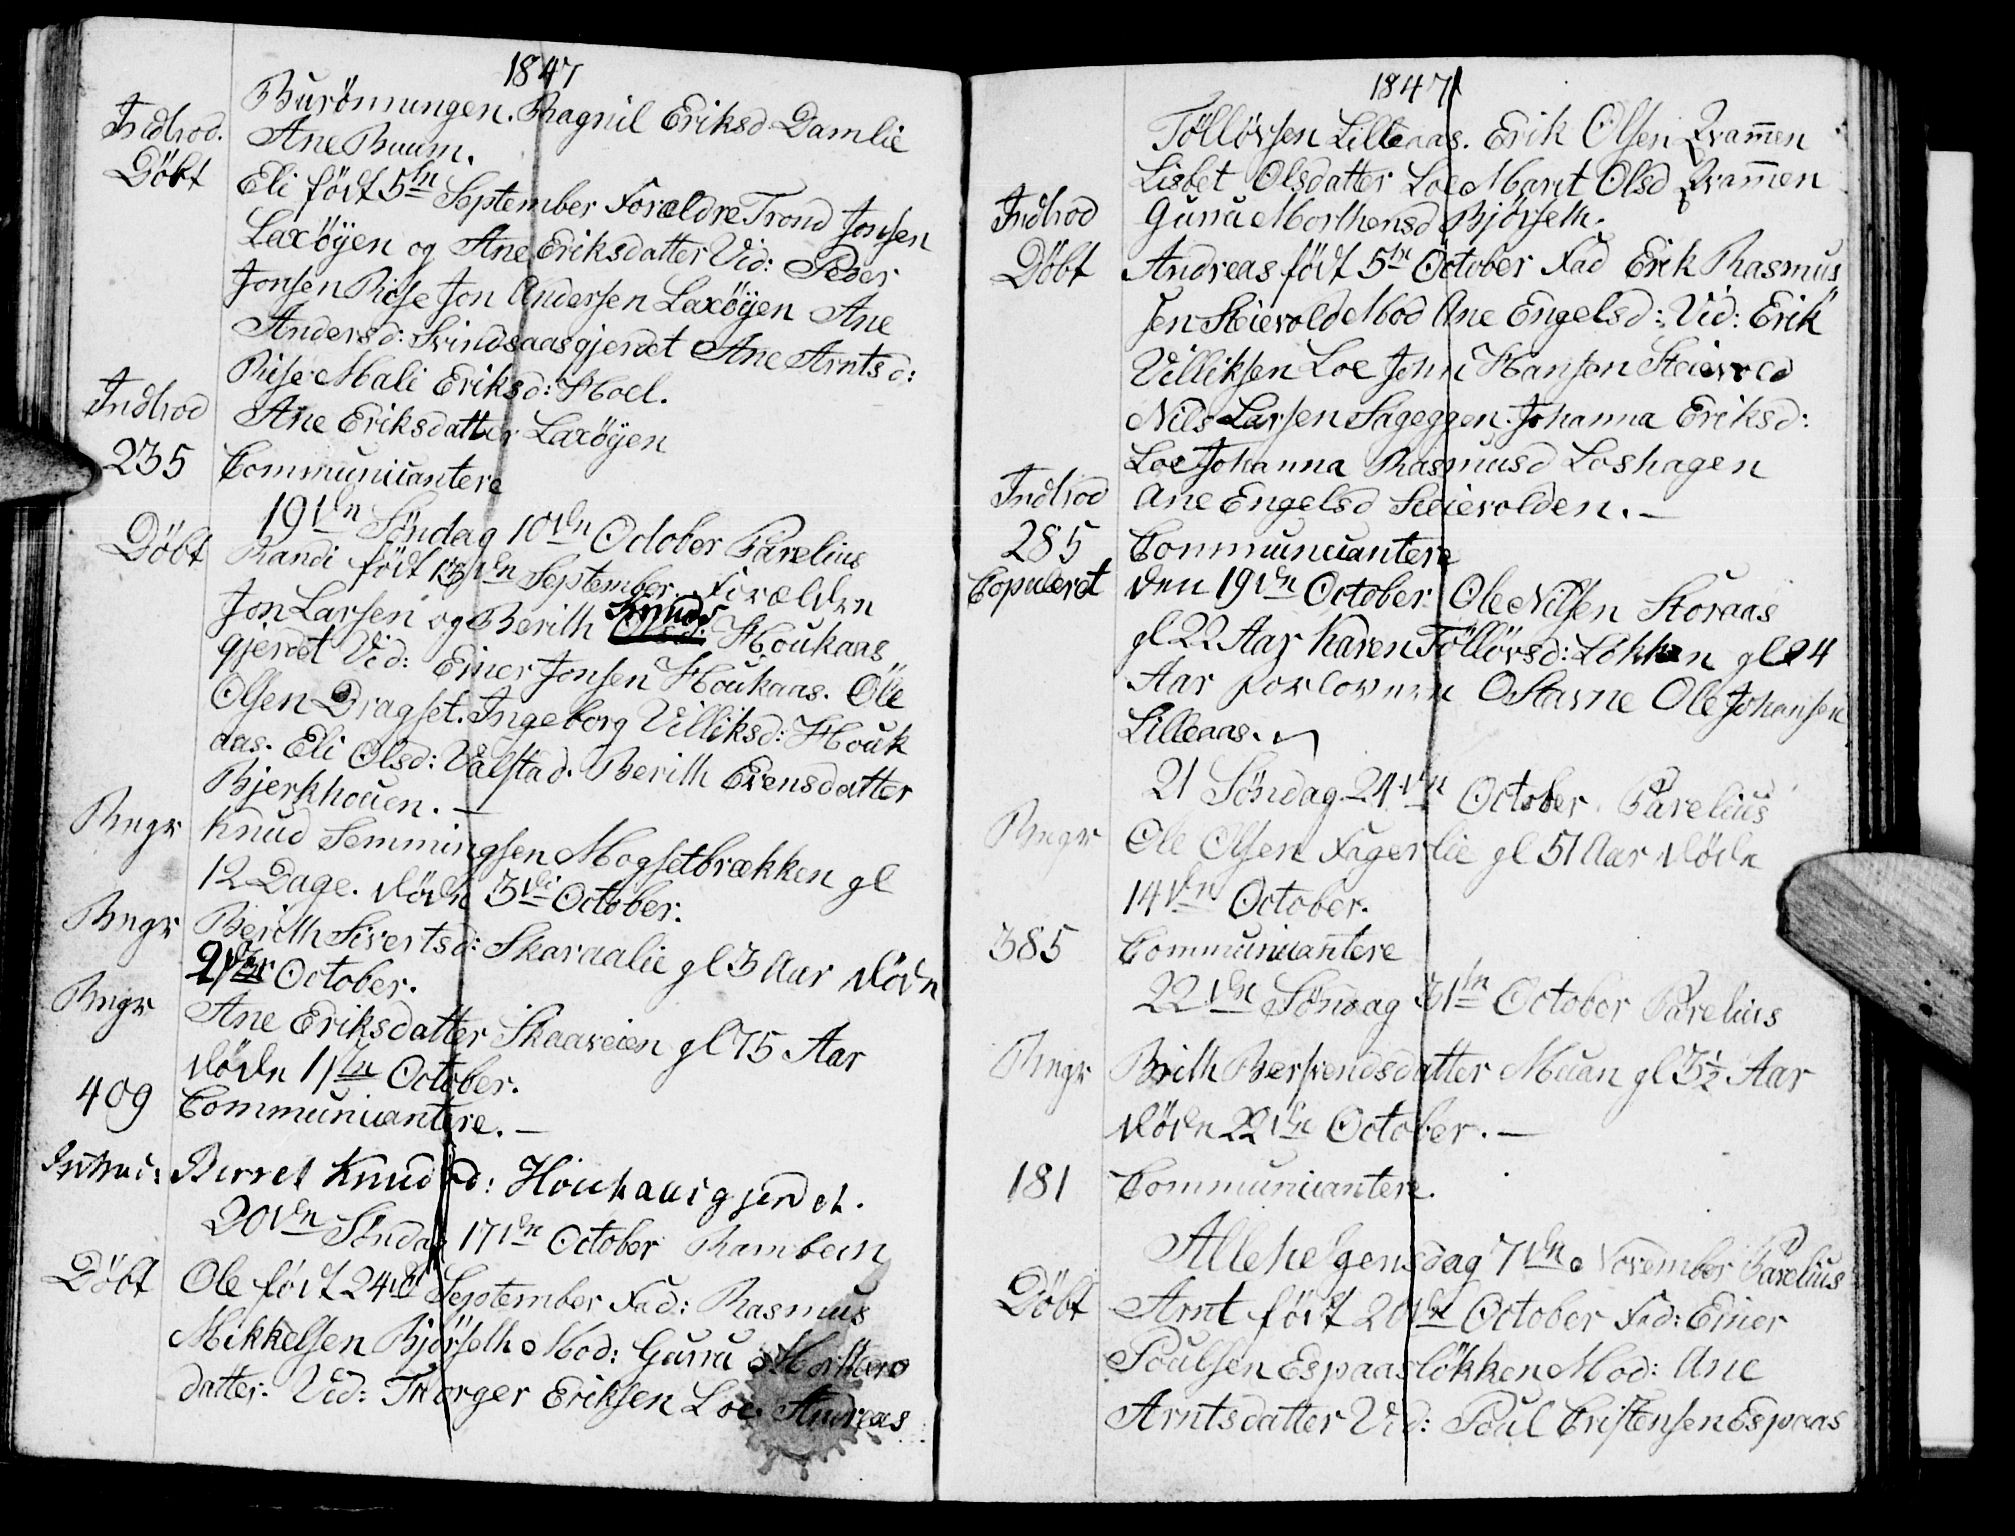 1847
Burönningen. Ragnil Eriksd Damlie
Indhod. Ane Buum.
Döbt Eli födt 5te September Foræeldre Trond Jonsen
Laxöÿen og Ane Eriksdatter Vid: Peder
Jonsen Riise Jon Andersen Laxöÿen Ane
Andersd: Svindsaasgjerdet Ane Arntsd:
Riise Mali Eriksd: Hoel.
Indhod Ane Eriksdatter Laxöÿen
235 Communicantere
19den Söndag 10den October Parelius
Döbt Randi födt 13den September Forælden
Jon Larsen og Berith Knuds Houkaas
gjerdet Vid: Einer Jonsen Houkaas. Ole
Olsen Dragset. Ingeborg Villiksd: Houk
aas. Eli Olsd: Valstad. Berith Evensdatter
Bjerkhouen. —
Bngr Knud Semmingsen Mogsetbrækken gl
12 Dage. döde 3di October.
Bngr Berith Sivertsd: Skaraalie gl 3 Aar döde
October.
Bngr Ane Eriksdatter Skaaveien gl 75 Aar
döde 11te October.
409 Communicantere. —
Inhod: Berret Knudsd: Houkaasgjerdet.
20den Söndag 17den October Rambech
Döbt Ole födt 24de September Fad: Rasmus
Mikkelsen Bjørseth Mod: Gurru Morthens
datter. Vid: Thorger Eriksen Loe. Andreas
1847
Töllövsen Lilleaas. Erik Olsen Qvam̄en
Lisbet Olsdatter Loe Marit Olsd Qvam̄en
Indhod Gurru Morthensd Bjørseth.
Döbt Andreas födt 5te October Fad Erik Rasmus
sen Steievold Mod Ane Engelsd: Vid: Erik
Villiksen Loe John Hansen Steievold
Nils Larsen Sageggen. Johanna Eriksd:
Loe Johanna Rasmusd Loshagen
Indhod Ane Engelsd Steievolden. —
285 Communicantere
Copuleret den 19den October Ole Nilsen Storaas
gl 22 Aar Karen Töllövsd: Lökken gl 24
Aar forlovere O Stavne Ole Johansen
Lilleaas.
21 Söndag 24de October Parelius
Bngr Ole Olsen Fagerlie gl 51 Aar döde
14de October.
385 Communicantere
22den Söndag 31te October Parelius
Bngr Brith Bersvendsdatter Muan gl 3½ Aar
döde 22de October. —
181 Communicantere.
Allehelgensdag 7de November Parelius
Döbt Arnt födt 20de October Fad: Einer
Poulsen Espaaslökken Mod: Ane
Arntsdatter Vid: Poul Cristensen Espaas